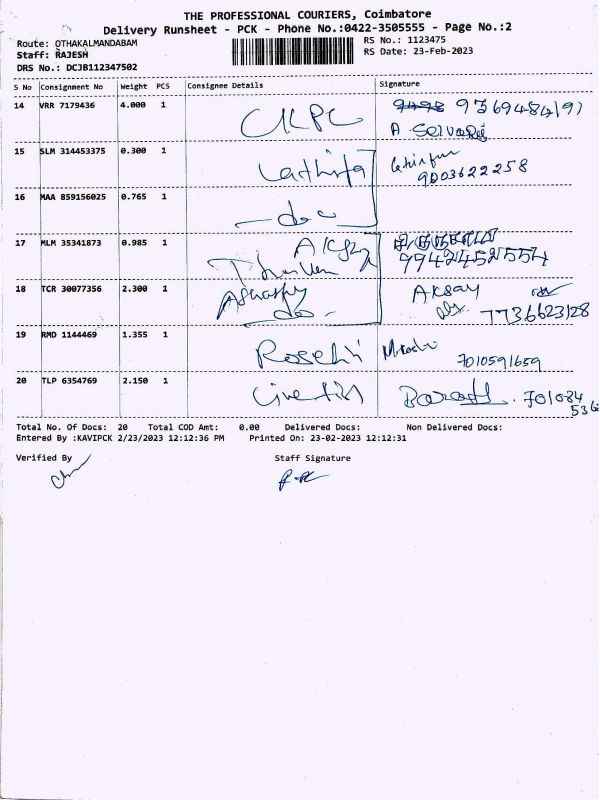 THE PROFESSIONAL COURIERS, Coimbatore
Delivery Runsheet - PCK - Phone No.:0422-3505555 - Page No.:2
Route: OTHAKALMANDABAM
Staff: RAJESH
DRS No.: DCJB112347502
RS No.: 1123475
RS Date: 23-Feb-2023
S No Consignment No Weight PCS Consignee Details Signature
14 VRR 7179436 4.000 1 CKPC 9369484191
A Selvaraj
15 SLM 314453375 0.300 1 Lathifa
9003622258
16 MAA 859156025 0.765 1 - do -
17 MLM 35341873 0.985 1 Akshy
9942452554
18 TCR 30077356 2.300 1 Aswathy Aksay
- do - 7736623128
19 RMD 1144469 1.355 1 7010591659
20 TLP 6354769 2.150 1 701084
536
Total No. Of Docs: 20 Total COD Amt: 0.00 Delivered Docs: Non Delivered Docs:
Entered By :KAVIPCK 2/23/2023 12:12:36 PM Printed On: 23-02-2023 12:12:31
Verified By Staff Signature